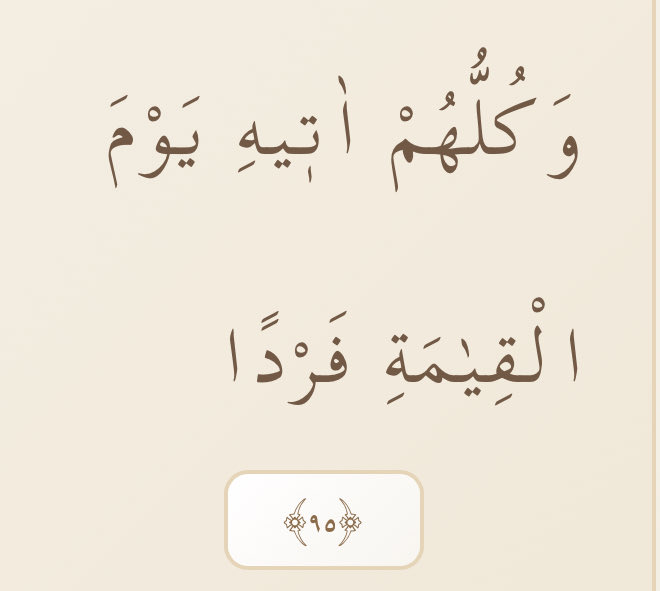 وَكُلُّهُمْ اٰتٖيهِ يَوْمَ
الْقِيٰمَةِ فَرْدًا
﴿٩٥﴾